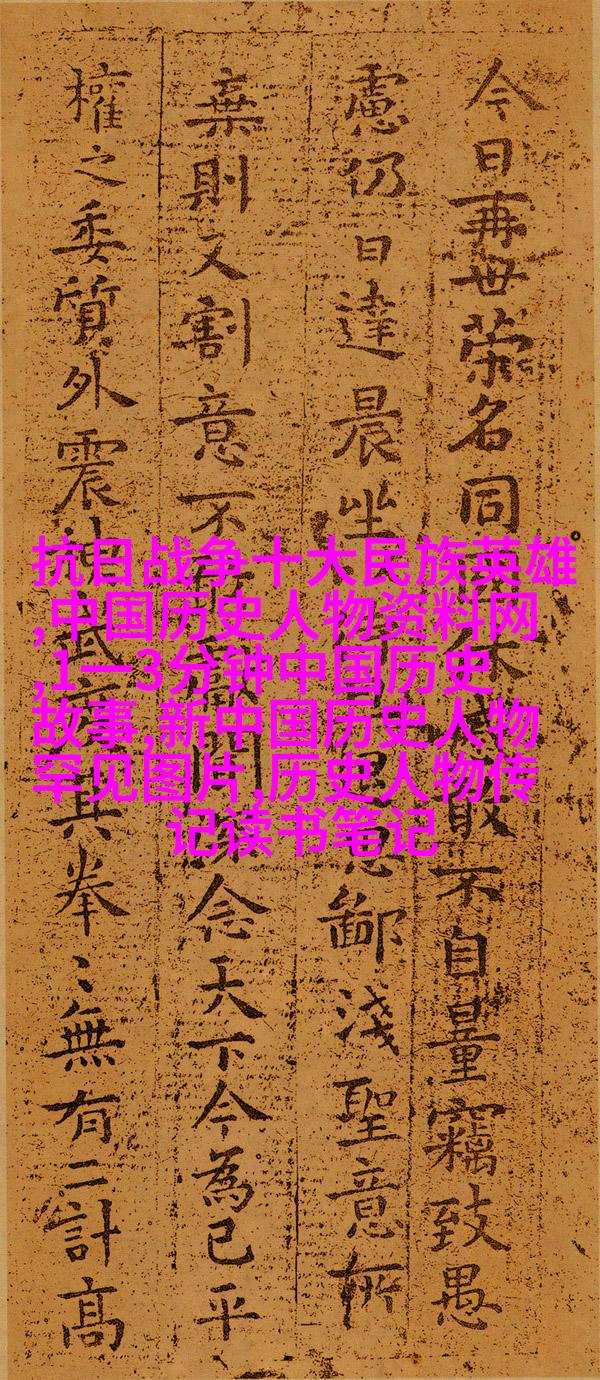 今日再世荣名同休敢不自量竊致愚
慮仍日達晨坐思鄙淺聖意所
棄則又割意不念天下今為已平
權之委質外震武其拳〻無有二計高
抗日战争十大民族英雄
,中国历史人物资料网
,1一3分钟中国历史
故事,新中国历史人物
罕见图片,历史人物传
记读书笔记